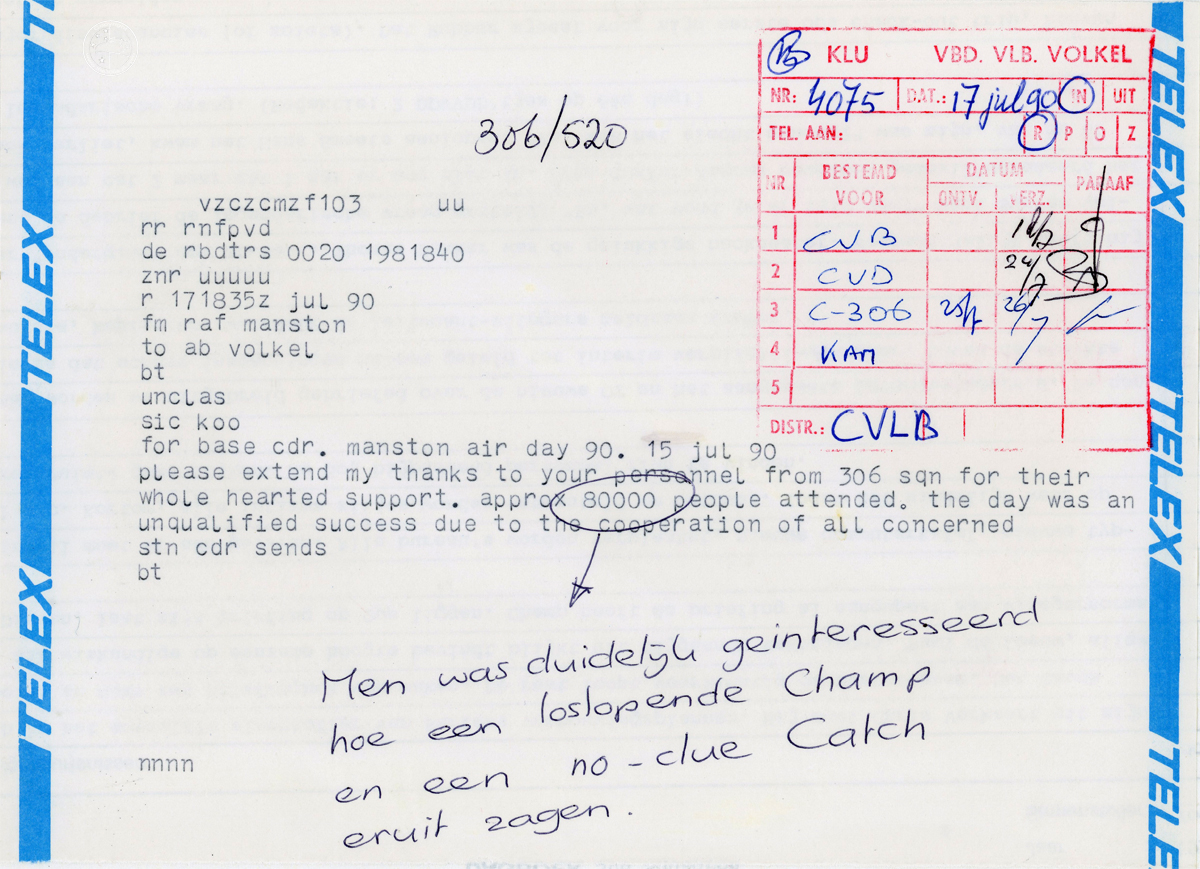 TELEX TELEX TELEX TELEX
306/520
KLU VBD. VLB. VOLKEL
NR: 4075 DAT.: 17 jul 90 IN UIT
TEL. AAN: R P O Z
NR BESTEMD VOOR DATUM PARAAF
ONTV. VERZ.
1 CVB
2 CVD 24/7
3 C-306 25/7 26/7
4 KAM
5
DISTR.: CVLB
vzczcmzf103 uu
rr rnfpvd
de rbdtrs 0020 1981840
znr uuuuu
r 171835z jul 90
fm raf manston
to ab volkel
bt
unclas
sic koo
for base cdr. manston air day 90. 15 jul 90
please extend my thanks to your personnel from 306 sqn for their
whole hearted support. approx 80000 people attended. the day was an
unqualified success due to the cooperation of all concerned
stn cdr sends
bt
Men was duidelijk geinteresseerd
hoe een loslopende Champ
en een no-clue Catch
eruit zagen.
nnnn
TELEX TELEX TELEX TELE